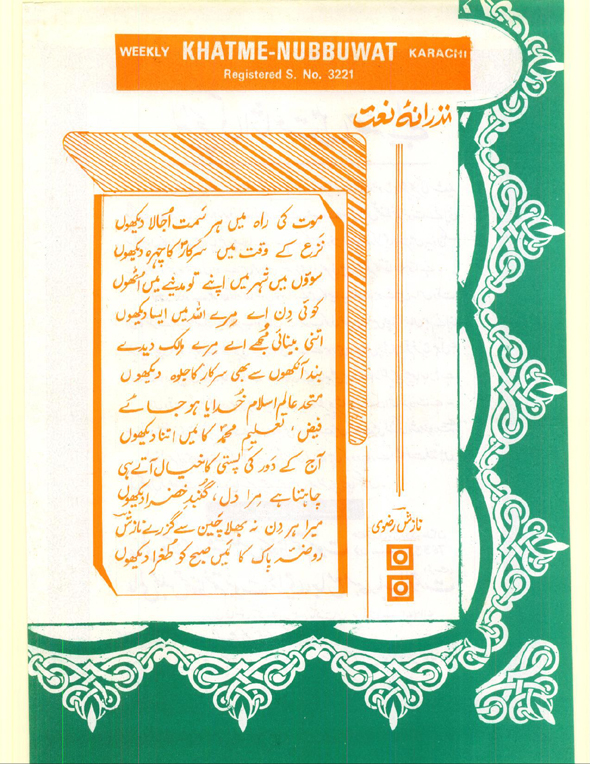 WEEKLY KHATME-NUBBUWAT KARACHI
Registered S. No. 3221
نذرانۂ نعت
موت کی راہ میں ہر سمت اُجالا دیکھوں
نزع کے وقت میں سرکارؐ کا چہرہ دیکھوں
سوؤں میں شہر میں اپنے تو مدینے میں اٹھوں
کوئی دِن اے مِرے اللہ میں ایسا دیکھوں
اتنی بینائی مُجھے اے مِرے مالک دیدے
بند آنکھوں سے بھی سرکار کا جلوہ دیکھوں
متحد عالمِ اسلام خُدایا ہو جائے
فیض، تعلیمِ محمدؐ کا میں اتنا دیکھوں
آج کے دَور کی پستی کا خیال آتے ہی
چاہتا ہے مِرا دل، گُنبدِ خضرا دیکھوں
میرا ہر دِن نہ بھلا چین سے گزرے نازشؔ
روضۂ پاک کا میں صبح کو طغرا دیکھوں
نازش رضوی